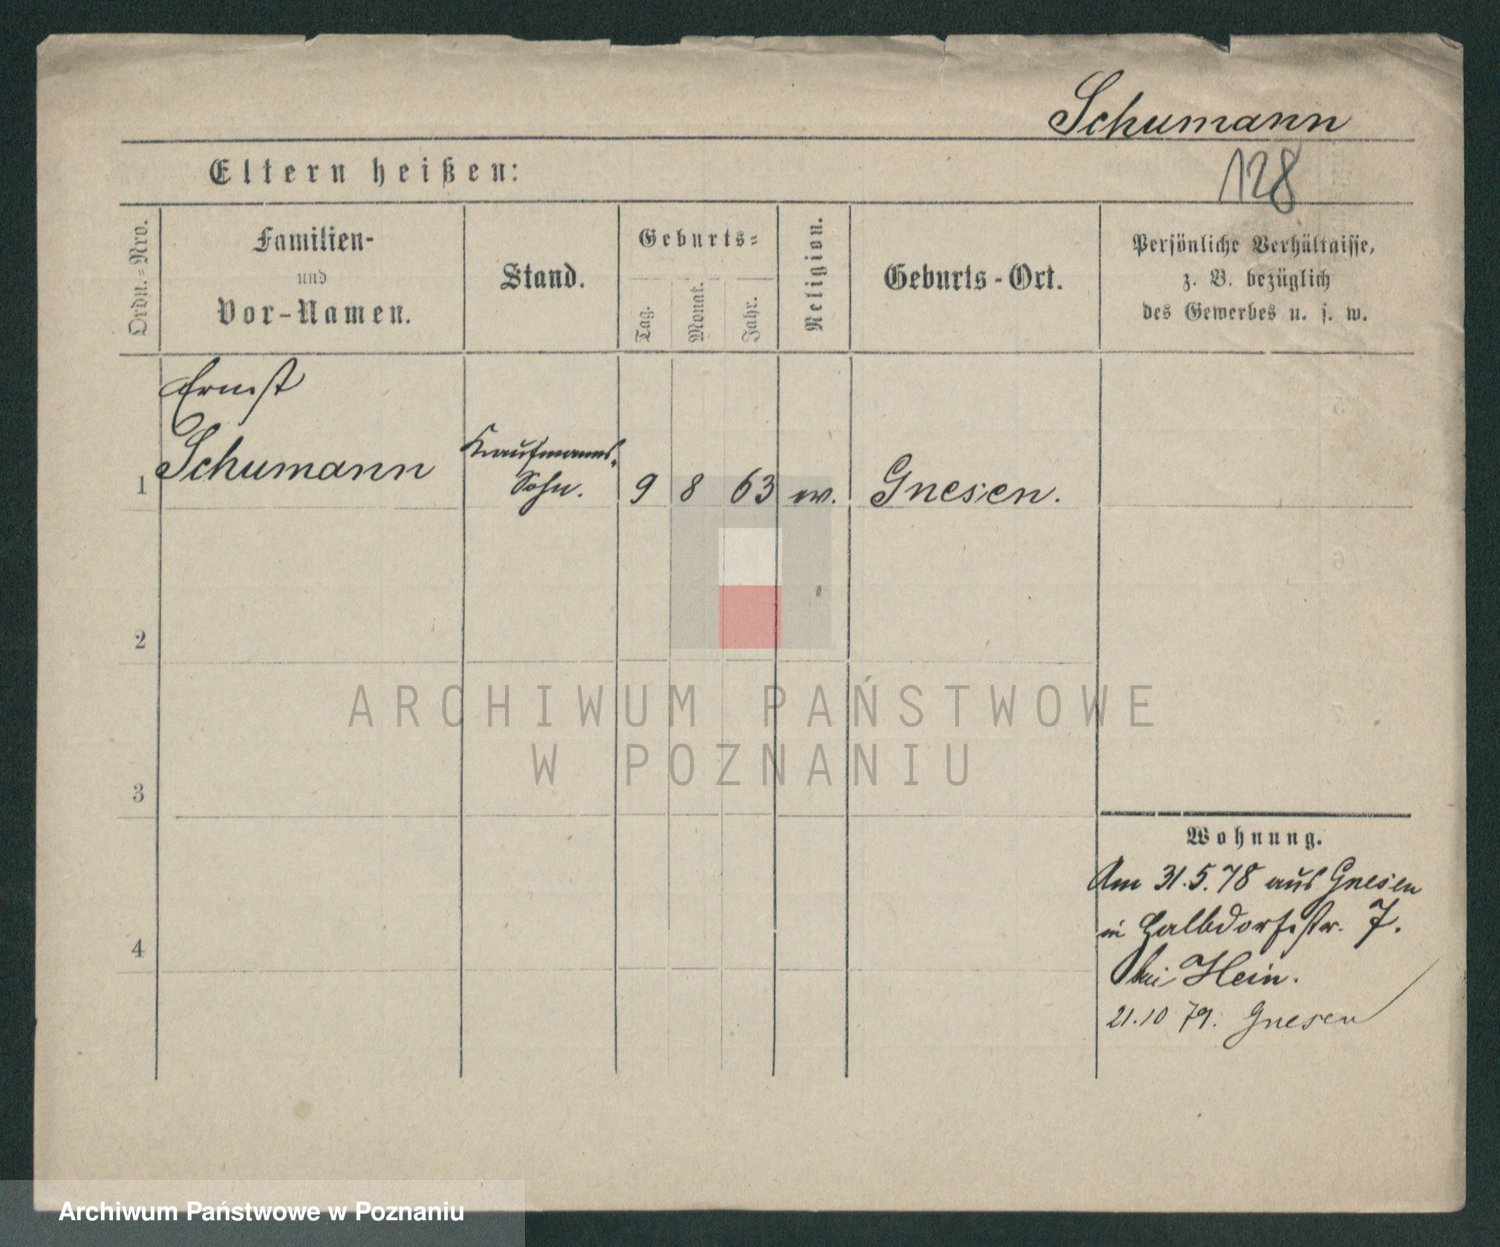 Schumann
128
Eltern heißen:
Ordn.=Nro.
Familien-
und
Vor-Namen.
Stand.
Geburts=
Tag.
Monat.
Jahr.
Religion.
Geburts-Ort.
Persönliche Verhältnisse,
z. B. bezüglich
des Gewerbes u. s. w.
Ernst
1 Schumann Kaufmanns- Sohn. 9 8 63 ev. Gnesen.
2
3
4
Wohnung.
Am 31.5.78 aus Gnesen
in Halbdorfstr. 7.
bei Hein.
21.10 79. Gnesen
ARCHIWUM PAŃSTWOWE
W POZNANIU
Archiwum Państwowe w Poznaniu